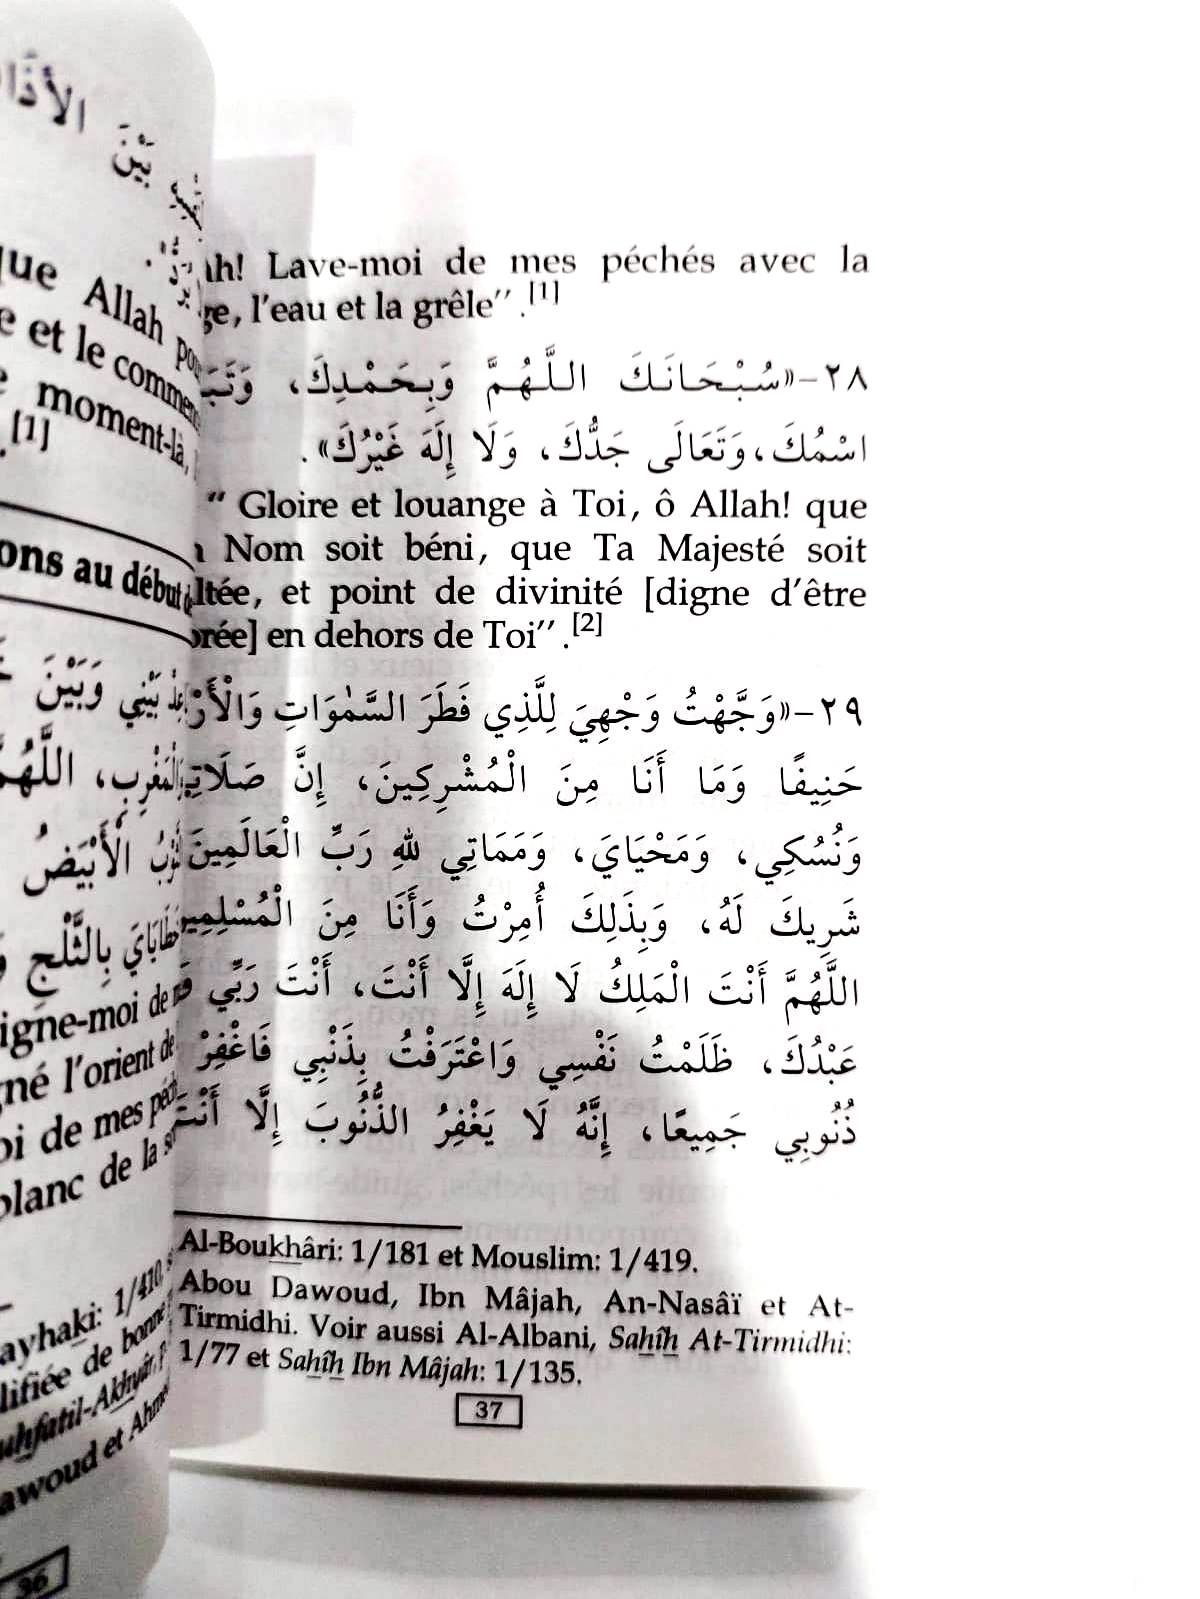 الأذا
بَيْنَ
que Allah
e et le
moment-là,
[1]
ons au début
بَيْنِي وَبَيْنَ
الْمَغْرِبِ، اللَّهُمَّ
الْأَبْيَضُ
بِالثَّلْجِ
igne-moi de
né l'orient de
oi de mes
blanc de la
ayhaki: 1/410,
lifiée de bonne
uhfatil-Akhyâr,
awoud et
36
ah! Lave-moi de mes péchés avec la
ge, l'eau et la grêle".[1]
٢٨-«سُبْحَانَكَ اللَّهُمَّ وَبِحَمْدِكَ، وَتَبَ
اسْمُكَ، وَتَعَالَى جَدُّكَ، وَلَا إِلَهَ غَيْرُكَ».
" Gloire et louange à Toi, ô Allah! que
Nom soit béni, que Ta Majesté soit
ltée, et point de divinité [digne d'être
orée] en dehors de Toi".[2]
٢٩-«وَجَّهْتُ وَجْهِيَ لِلَّذِي فَطَرَ السَّمٰوَاتِ وَالْأَرْ
حَنِيفًا وَمَا أَنَا مِنَ الْمُشْرِكِينَ، إِنَّ صَلَاتِي
وَنُسُكِي، وَمَحْيَايَ، وَمَمَاتِي لِلهِ رَبِّ الْعَالَمِينَ
شَرِيكَ لَهُ، وَبِذَلِكَ أُمِرْتُ وَأَنَا مِنَ الْمُسْلِمِينَ
اللَّهُمَّ أَنْتَ الْمَلِكُ لَا إِلَهَ إِلَّا أَنْتَ، أَنْتَ رَبِّي
عَبْدُكَ، ظَلَمْتُ نَفْسِي وَاعْتَرَفْتُ بِذَنْبِي فَاغْفِرْ
ذُنُوبِي جَمِيعًا، إِنَّهُ لَا يَغْفِرُ الذُّنُوبَ إِلَّا أَنْتَ
Al-Boukhâri: 1/181 et Mouslim: 1/419.
Abou Dawoud, Ibn Mâjah, An-Nasâï et At-
Tirmidhi. Voir aussi Al-Albani, Sahîh At-Tirmidhi:
1/77 et Sahîh Ibn Mâjah: 1/135.
37